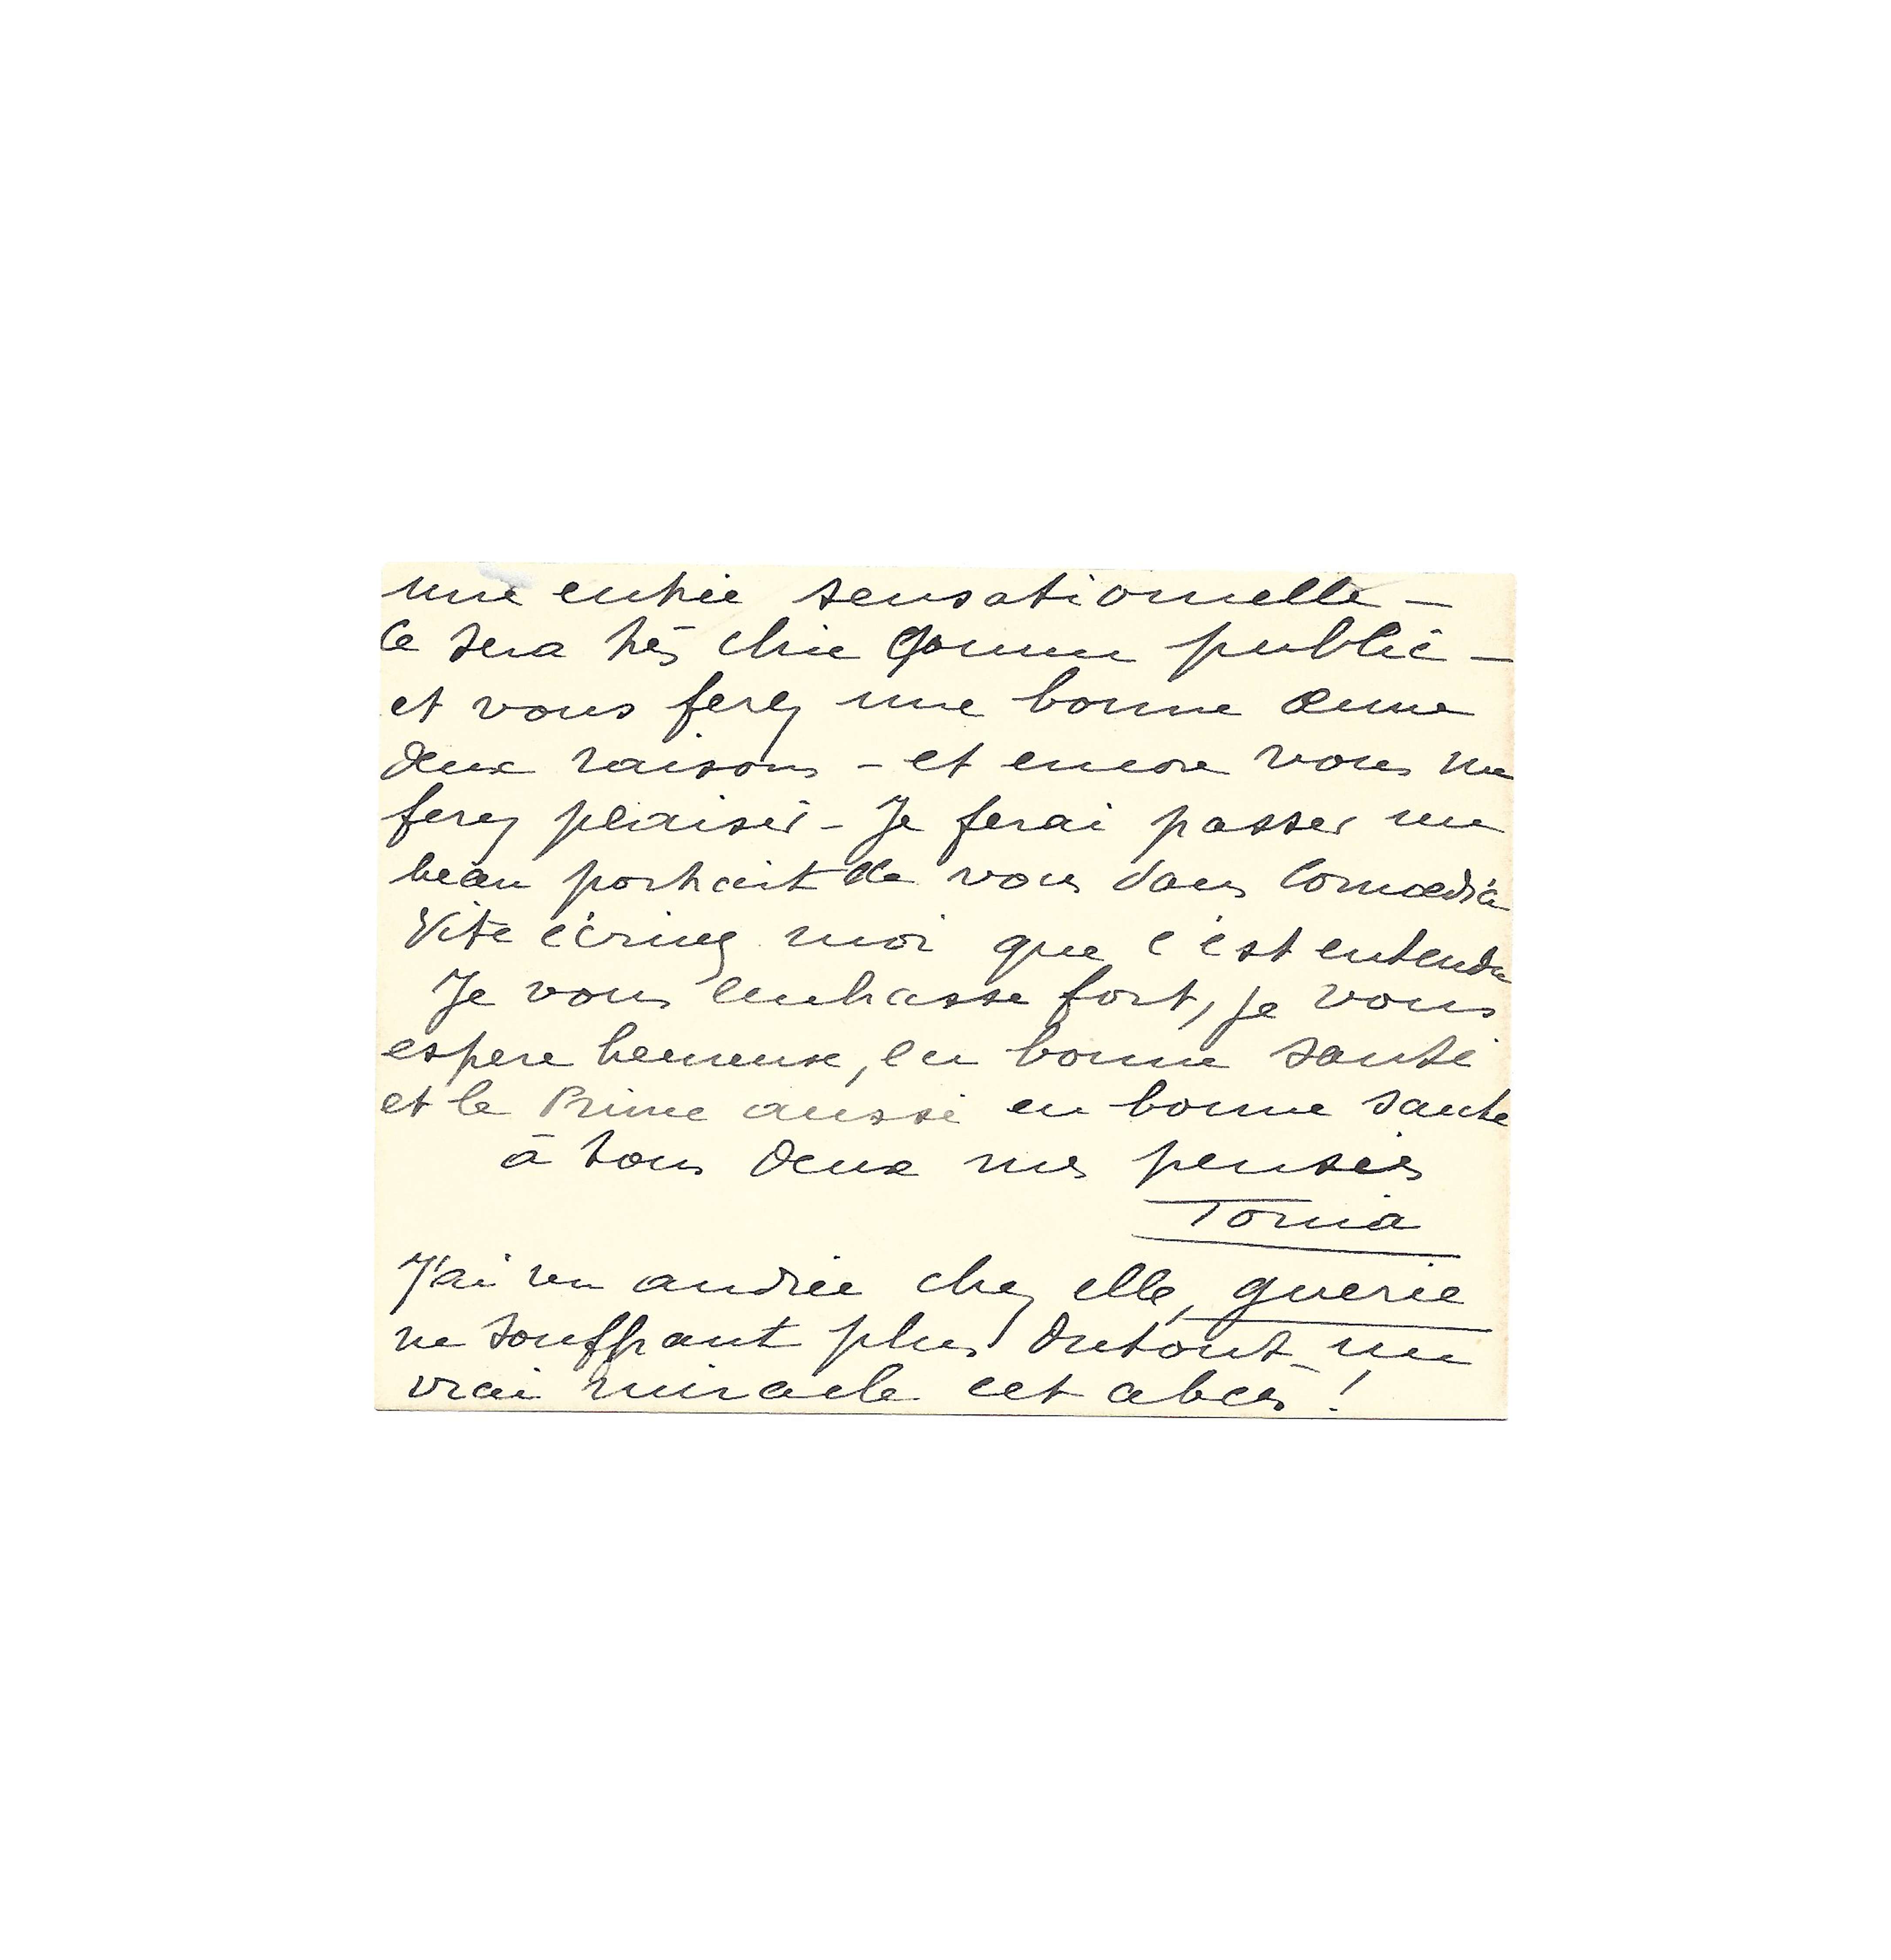 une entrée sensationnelle –
Ce sera très chic comme public –
et vous ferez une bonne œuvre
deux raisons – et encore vous me
ferez plaisir – Je ferai passer un
beau portrait de vous dans Comœdia
Vite écrivez moi que c'est entendu
Je vous embrasse fort, je vous
espere heureuse, en bonne santé
et le Prince aussi en bonne santé
à tous deux mes pensées
Tonia
J'ai vu andrée chez elle, guerie
ne souffrant plus dutout – un
vrai miracle cet abcès !